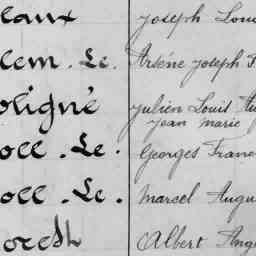 eaux Joseph Loui
lem. Le. Arsène Joseph F
oligné Julien Louis Au
Jean Marie
oll. Le. Georges Fran
oll. Le. Marcel Augu
oresh Albert Ang